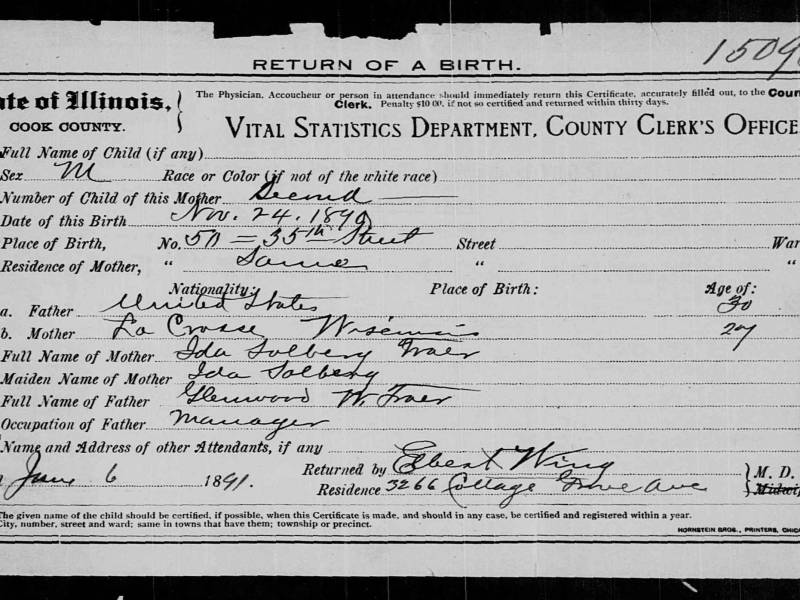 RETURN OF A BIRTH. 1509
ate of Illinois,
COOK COUNTY.
The Physician, Accoucheur or person in attendance should immediately return this Certificate, accurately filled out, to the Coun
Clerk. Penalty $10.00, if not so certified and returned within thirty days.
VITAL STATISTICS DEPARTMENT, COUNTY CLERK'S OFFICE
Full Name of Child (if any)
Sex M Race or Color (if not of the white race)
Number of Child of this Mother Second
Date of this Birth Nov. 24. 1890
Place of Birth, No. 50 = 35th Street Street War
Residence of Mother, " Same " "
Nationality: Place of Birth: Age of:
a. Father United States 30
b. Mother La Crosse Wisconsin 27
Full Name of Mother Ida Solberg Traer
Maiden Name of Mother Ida Solberg
Full Name of Father Glenwood W. Traer
Occupation of Father Manager
Name and Address of other Attendants, if any
6 1891. Returned by Elbert Wing M. D.
Residence 3266 Cottage Grove Ave Midwif
The given name of the child should be certified, if possible, when this Certificate is made, and should in any case, be certified and registered within a year.
City, number, street and ward; same in towns that have them; township or precinct.
HORNSTEIN BROS., PRINTERS, CHIC